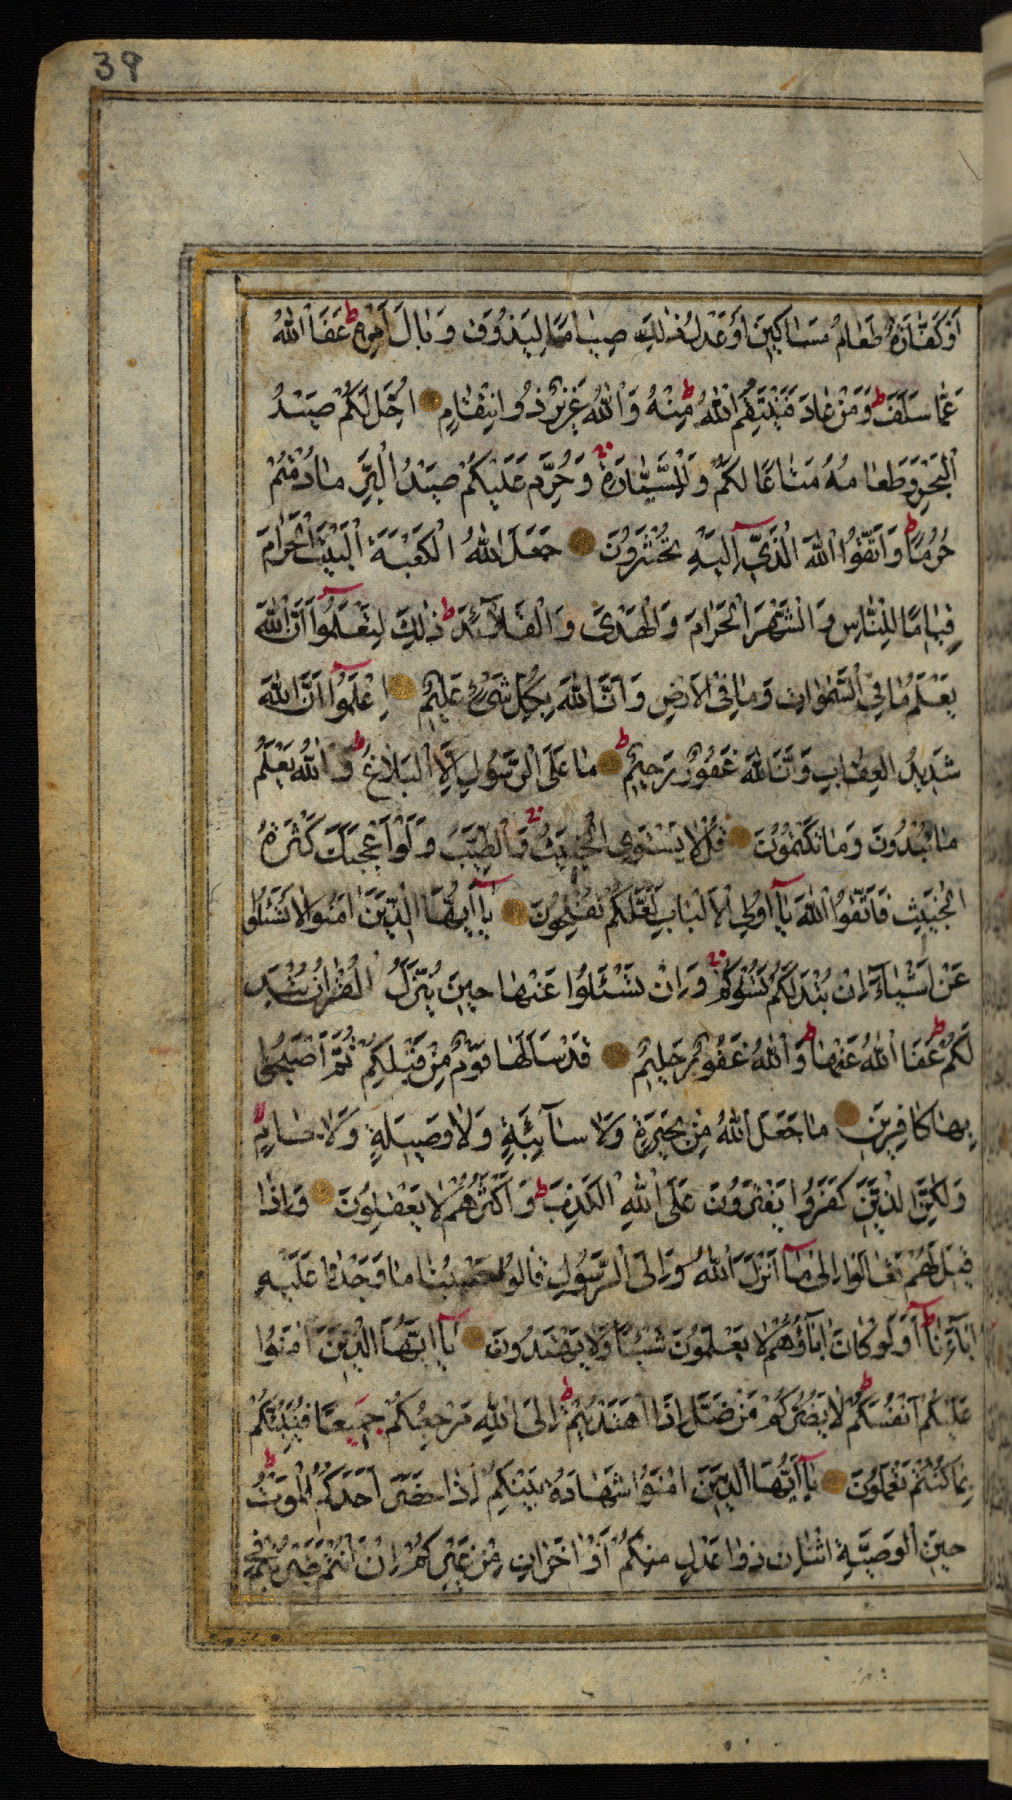 39
أَوْ كَفَّارَةٌ طَعَامُ مَسَاكِينَ أَوْ عَدْلُ ذٰلِكَ صِيَامًا لِيَذُوقَ وَبَالَ أَمْرِهِ ط عَفَا اللّٰهُ
عَمَّا سَلَفَ ط وَمَنْ عَادَ فَيَنْتَقِمُ اللّٰهُ مِنْهُ ط وَاللّٰهُ عَزِيزٌ ذُو انْتِقَامٍ اُحِلَّ لَكُمْ صَيْدُ
الْبَحْرِ وَطَعَامُهُ مَتَاعًا لَكُمْ وَلِلسَّيَّارَةِ وَحُرِّمَ عَلَيْكُمْ صَيْدُ الْبَرِّ مَا دُمْتُمْ
حُرُمًا ط وَاتَّقُوا اللّٰهَ الَّذِي إِلَيْهِ تُحْشَرُونَ جَعَلَ اللّٰهُ الْكَعْبَةَ الْبَيْتَ الْحَرَامَ
قِيَامًا لِلنَّاسِ وَالشَّهْرَ الْحَرَامَ وَالْهَدْيَ وَالْقَلَآئِدَ ط ذٰلِكَ لِتَعْلَمُوٓا أَنَّ اللّٰهَ
يَعْلَمُ مَا فِي السَّمٰوَاتِ وَمَا فِي الْاَرْضِ وَاَنَّ اللّٰهَ بِكُلِّ شَيْءٍ عَلِيمٌ اِعْلَمُوٓا اَنَّ اللّٰهَ
شَدِيدُ الْعِقَابِ وَاَنَّ اللّٰهَ غَفُورٌ رَحِيمٌ ط مَا عَلَى الرَّسُولِ اِلَّا الْبَلَاغُ ط وَاللّٰهُ يَعْلَمُ
مَا تُبْدُونَ وَمَا تَكْتُمُونَ قُلْ لَا يَسْتَوِي الْخَبِيثُ وَالطَّيِّبُ وَلَوْ اَعْجَبَكَ كَثْرَةُ
الْخَبِيثِ فَاتَّقُوا اللّٰهَ يَآ اُولِي الْاَلْبَابِ لَعَلَّكُمْ تُفْلِحُونَ يَآ اَيُّهَا الَّذِينَ اٰمَنُوا لَا تَسْئَلُوا
عَنْ اَشْيَآءَ اِنْ تُبْدَ لَكُمْ تَسُؤْكُمْ وَاِنْ تَسْئَلُوا عَنْهَا حِينَ يُنَزَّلُ الْقُرْاٰنُ تُبْدَ
لَكُمْ ط عَفَا اللّٰهُ عَنْهَا ط وَاللّٰهُ غَفُورٌ حَلِيمٌ قَدْ سَاَلَهَا قَوْمٌ مِنْ قَبْلِكُمْ ثُمَّ اَصْبَحُوا
بِهَا كَافِرِينَ مَا جَعَلَ اللّٰهُ مِنْ بَحِيرَةٍ وَلَا سَآئِبَةٍ وَلَا وَصِيلَةٍ وَلَا حَامٍ لا
وَلٰكِنَّ الَّذِينَ كَفَرُوا يَفْتَرُونَ عَلَى اللّٰهِ الْكَذِبَ ط وَاَكْثَرُهُمْ لَا يَعْقِلُونَ وَاِذَا
قِيلَ لَهُمْ تَعَالَوْا اِلٰى مَآ اَنْزَلَ اللّٰهُ وَاِلَى الرَّسُولِ قَالُوا حَسْبُنَا مَا وَجَدْنَا عَلَيْهِ
اٰبَآءَنَا ط اَوَلَوْ كَانَ اٰبَآؤُهُمْ لَا يَعْلَمُونَ شَيْئًا وَلَا يَهْتَدُونَ يَآ اَيُّهَا الَّذِينَ اٰمَنُوا
عَلَيْكُمْ اَنْفُسَكُمْ ط لَا يَضُرُّكُمْ مَنْ ضَلَّ اِذَا اهْتَدَيْتُمْ ط اِلَى اللّٰهِ مَرْجِعُكُمْ جَمِيعًا فَيُنَبِّئُكُمْ
بِمَا كُنْتُمْ تَعْمَلُونَ يَآ اَيُّهَا الَّذِينَ اٰمَنُوا شَهَادَةُ بَيْنِكُمْ اِذَا حَضَرَ اَحَدَكُمُ الْمَوْتُ ط
حِينَ الْوَصِيَّةِ اثْنَانِ ذَوَا عَدْلٍ مِنْكُمْ اَوْ اٰخَرَانِ مِنْ غَيْرِكُمْ اِنْ اَنْتُمْ ضَرَبْتُمْ فِي